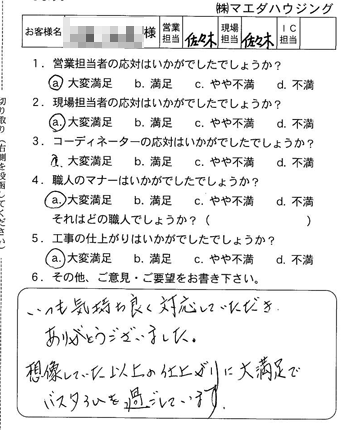 ㈱マエダハウジング
お客様名 様 営業担当 佐々木 現場担当 佐々木 ＩＣ担当
1．営業担当者の応対はいかがでしたでしょうか？
a. 大変満足 b. 満足 c. やや不満 d. 不満
2．現場担当者の応対はいかがでしたでしょうか？
a. 大変満足 b. 満足 c. やや不満 d. 不満
3．コーディネーターの応対はいかがでしたでしょうか？
a. 大変満足 b. 満足 c. やや不満 d. 不満
4．職人のマナーはいかがでしたでしょうか？
a. 大変満足 b. 満足 c. やや不満 d. 不満
それはどの職人でしょうか？（ ）
5．工事の仕上がりはいかがでしたでしょうか？
a. 大変満足 b. 満足 c. やや不満 d. 不満
6．その他、ご意見・ご要望をお書き下さい。
いつも気持ち良く対応していただき
ありがとうございました。
想像していた以上の仕上がりに大満足で
バスタイムを過ごしています。
切り取り（右側を投函してください）